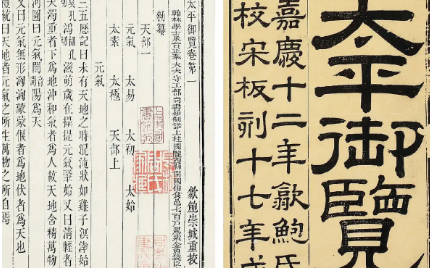 太平御覽
嘉慶十二年歙鮑氏
校宋板刻十七年成
太平御覽卷第一 歙鮑崇城重校
翰林學士承旨正奉大夫守工部尚書知制誥上柱國隴西縣開國伯食邑七百戶賜紫金魚袋臣
敕纂
天部一
元氣 太易 太初 太始
太素 太極 天部上
元氣
三五歷記曰未有天地之時混沌狀如雞子溟涬始
牙濛鴻滋萌歲在攝提元氣肇始又曰清輕者
天濁重者下為地沖和氣者為人故天地含精萬物
河圖曰元氣闓陽為天
又曰元氣無形洶洶蒙蒙偃者為地伏者為天也
禮統曰天地者元氣之所生萬物之所自焉